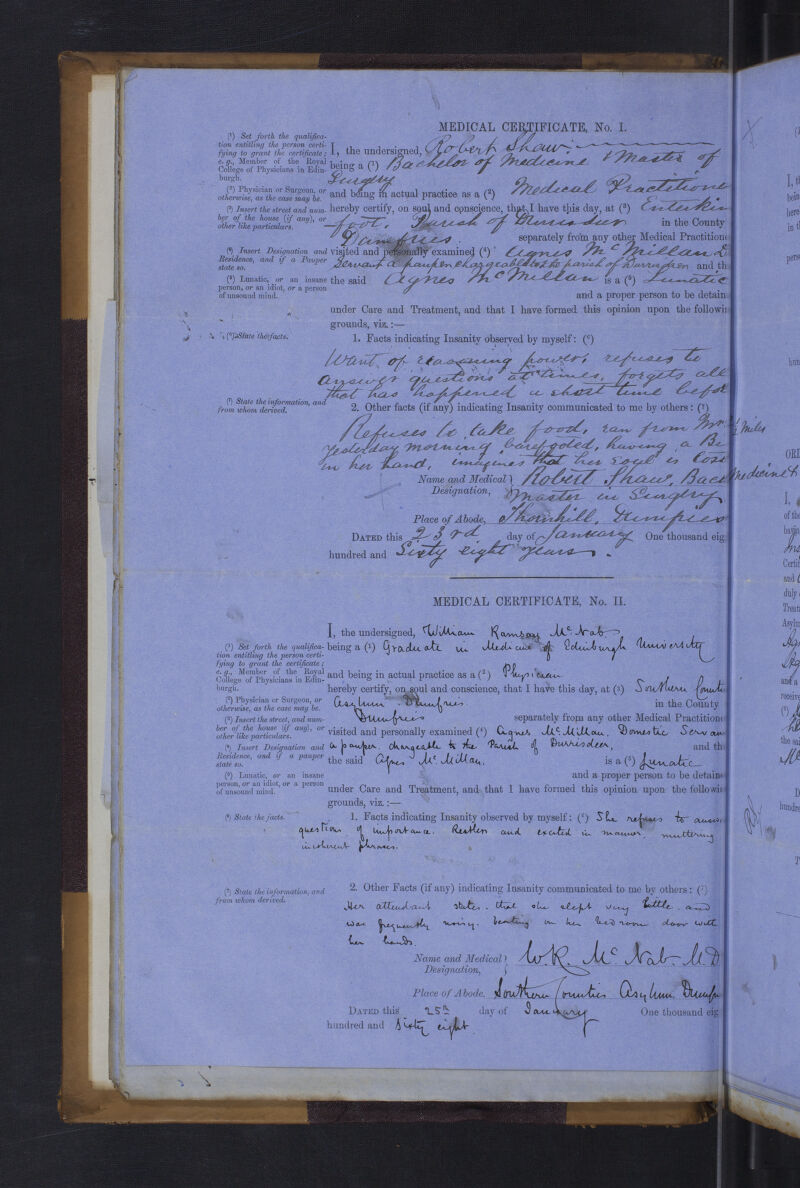 MEDICAL CERTIFICATE, No. I.
(¹) Set forth the qualifica-
tion entitling the person certi-
fying to grant the certificate;
e.g., Member of the Royal
College of Physicians in Edin-
burgh.
(²) Physician or Surgeon, or
otherwise, as the case may be.
(³) Insert the street and num-
ber of the house (if any), or
other like particulars.
(⁴) Insert Designation and
Residence, and if a Pauper
state so.
(⁵) Lunatic, or an insane
person, or an idiot, or a person
of unsound mind.
(⁶) State the facts.
(⁷) State the information, and
from whom derived.
I, the undersigned, Robert Shaw.
being a (¹) Bachelor of Medicine & Master of
Surgery
and being in actual practice as a (²) Medical Practitione
hereby certify, on soul and conscience, that I have this day, at (³) Enterkin
foot, Parish of Durrisdeer in the County
Dumfries. separately from any other Medical Practitione
visited and personally examined (⁴) Agnes McMillan D
Servant a pauper chargeable to the parish of Durrisdeer and th
the said Agnes McMillan is a (⁵) Lunatic
and a proper person to be detain
under Care and Treatment, and that I have formed this opinion upon the followin
grounds, viz.:—
1. Facts indicating Insanity observed by myself: (⁶)
Want of reasoning power, refuses to
answer questions at times, forgets all
that has happened a short time befor
2. Other facts (if any) indicating Insanity communicated to me by others: (⁷)
Refuses to take food, ran from ½ miles
yesterday morning barefooted, having a Bi
in her hand, imagines that her soul is lost
Name and Medical Designation, Robert Shaw, Bach Medicine &
Master in Surgery
Place of Abode, Thornhill, Dumfries
DATED this 23rd day of January One thousand eig
hundred and Sixty eight years.
MEDICAL CERTIFICATE, No. II.
(¹) Set forth the qualifica-
tion entitling the person certi-
fying to grant the certificate;
e.g., Member of the Royal
College of Physicians in Edin-
burgh.
(²) Physician or Surgeon, or
otherwise, as the case may be.
(³) Insert the street, and num-
ber of the house (if any), or
other like particulars.
(⁴) Insert Designation and
Residence, and if a pauper
state so.
(⁵) Lunatic, or an insane
person, or an idiot, or a person
of unsound mind.
(⁶) State the facts.
(⁷) State the information, and
from whom derived.
I, the undersigned, William Ramsay McNab
being a (¹) Graduate in Medicine of Edinburgh University
and being in actual practice as a (²) Physician
hereby certify, on soul and conscience, that I have this day, at (³) Southern Countie
Asylum Dumfries in the County
Dumfries separately from any other Medical Practitione
visited and personally examined (⁴) Agnes McMillan. Domestic Servan
a pauper. chargeable to the Parish of Durrisdeer, and th
the said Agnes McMillan. is a (⁵) Lunatic
and a proper person to be detaine
under Care and Treatment, and that I have formed this opinion upon the followin
grounds, viz.:—
1. Facts indicating Insanity observed by myself: (⁶) She refuses to answe
questions of importance. Restless and excited in manner. muttering
incoherent phrases.
2. Other Facts (if any) indicating Insanity communicated to me by others: (⁷)
Her attendant states that she slept very little and
was frequently noisy. beating on her bedroom door with
her hands.
Name and Medical Designation, W.R. McNab. M.D
Place of Abode. Southern Counties Asylum Dumfri
DATED this 25th day of January One thousand eig
hundred and Sixty eight.